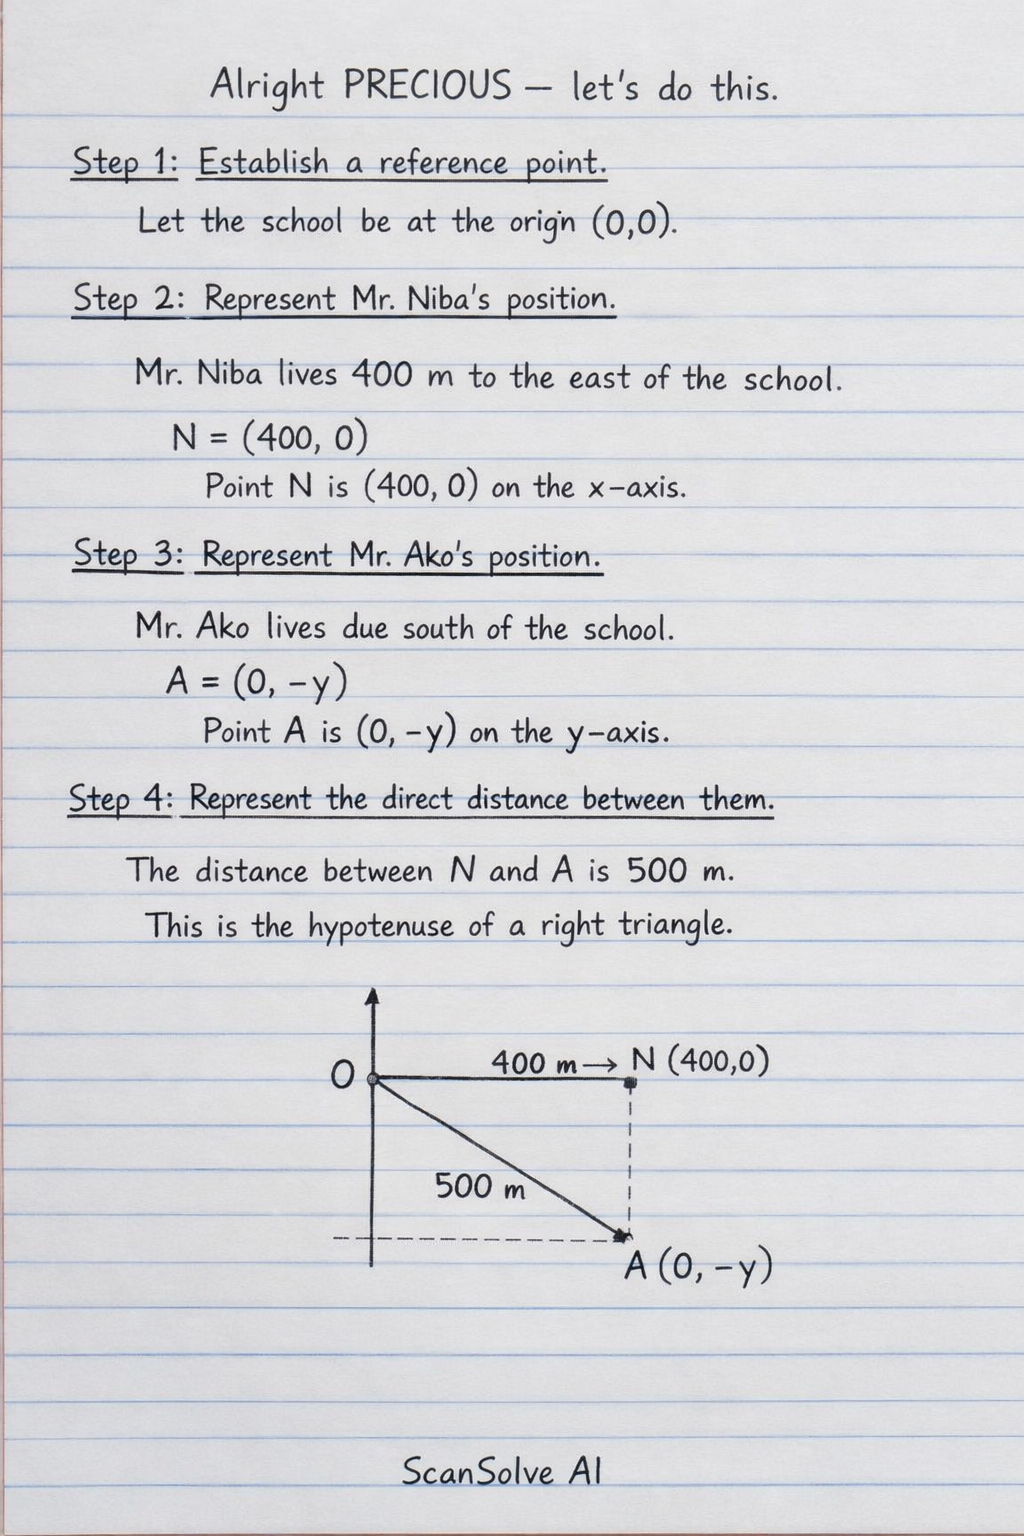 Alright PRECIOUS – let's do this.
Step 1: Establish a reference point.
Let the school be at the origin (0,0).
Step 2: Represent Mr. Niba's position.
Mr. Niba lives 400 m to the east of the school.
N = (400, 0)
Point N is (400, 0) on the x-axis.
Step 3: Represent Mr. Ako's position.
Mr. Ako lives due south of the school.
A = (0, -y)
Point A is (0, -y) on the y-axis.
Step 4: Represent the direct distance between them.
The distance between N and A is 500 m.
This is the hypotenuse of a right triangle.
400 m→ N (400,0)
O
500 m
A (0, -y)
ScanSolve AI